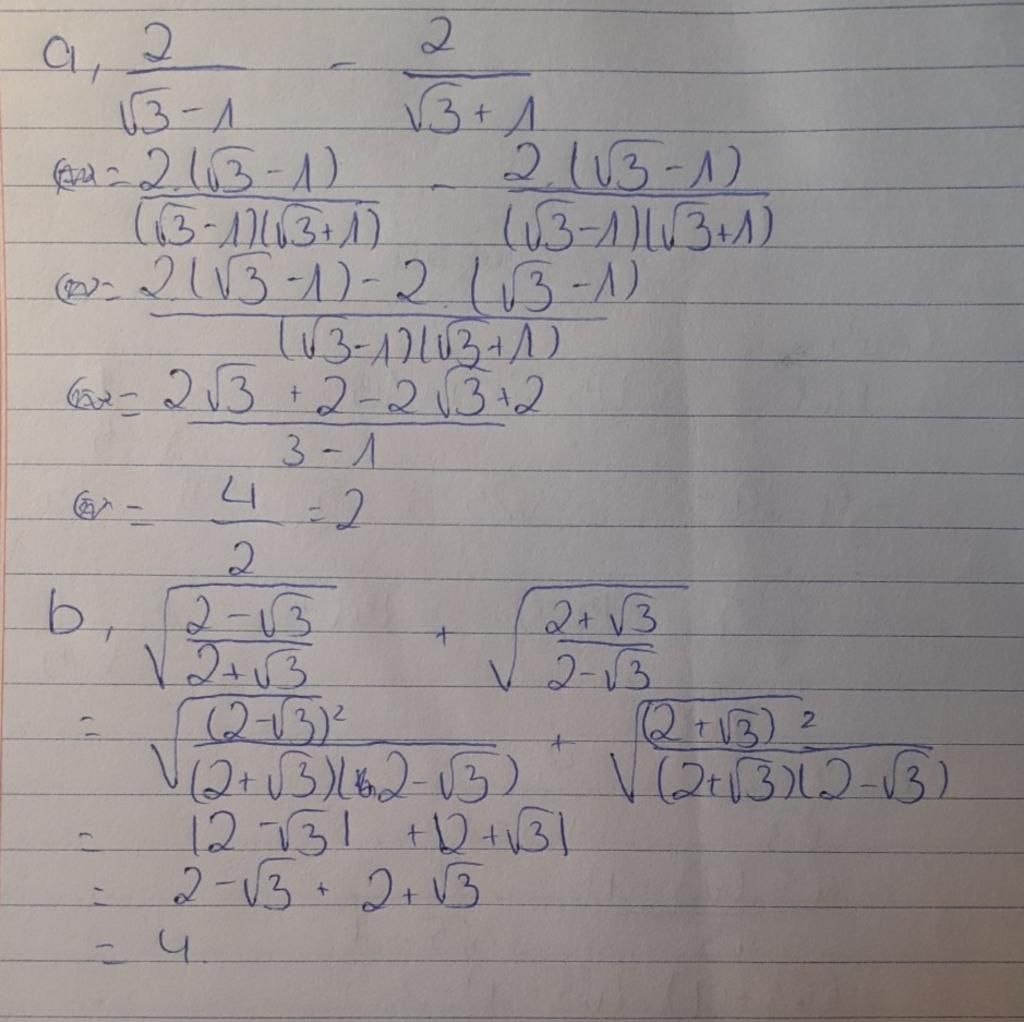 a, 2/(√3 - 1) - 2/(√3 + 1)
= 2.(√3 - 1)/((√3 - 1)(√3 + 1)) - 2.(√3 - 1)/((√3 - 1)(√3 + 1))
= (2.(√3 - 1) - 2.(√3 - 1))/((√3 - 1)(√3 + 1))
= (2√3 + 2 - 2√3 + 2)/(3 - 1)
= 4/2 = 2
b, √((2 - √3)/(2 + √3)) + √((2 + √3)/(2 - √3))
= √((2 - √3)²/((2 + √3)(2 - √3))) + √((2 + √3)²/((2 + √3)(2 - √3)))
= |2 - √3| + |2 + √3|
= 2 - √3 + 2 + √3
= 4.